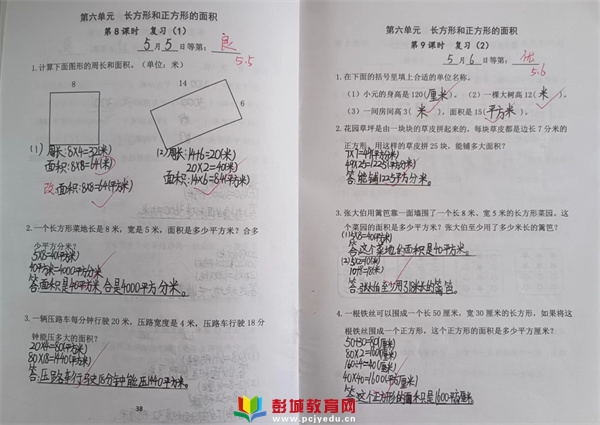 第六单元 长方形和正方形的面积
第8课时 复习(1)
5月5日等第: 良
5.5
1.计算下面图形的周长和面积。(单位:米)
8
14
6
(1)周长:8×4=32(米)
面积:8×8=64(米)
改:面积:8×8=64(平方米)
(2)周长:14+6=20(米)
20×2=40(米)
面积:14×6=84(平方米)
2.一个长方形菜地长是8米,宽是5米,面积是多少平方米?合多
少平方分米?
5×8=40(平方米)
40平方米=4000平方分米
答:面积是40平方米,合是4000平方分米。
3.一辆压路车每分钟行驶20米,压路宽度是4米,压路车行驶18分
钟能压多大的面积?
20×4=80(平方米)
80×18=1440(平方米)
答:压路车行驶18分钟能压1440平方米。
38
第六单元 长方形和正方形的面积
第9课时 复习(2)
5月6日等第: 优
5.6
1.在下面的括号里填上合适的单位名称。
(1)小元的身高是120(厘米)。 (2)一棵大树高12(米)。
(3)一间房间高3(米),面积是15(平方米)。
2.花园草坪是由一块块的草皮拼起来的,每块草皮都是边长7分米的
正方形,用这样的草皮拼25块,能铺多大面积?
7×7=49(平方分米)
49×25=1225(平方分米)
答:能铺1225平方分米。
3.张大伯用篱笆靠一面墙围了一个长8米、宽5米的长方形菜园。这
个菜园的面积是多少平方米?张大伯至少用了多少米长的篱笆?
(1)5×8=40(平方米)
答:这个菜地的面积是40平方米。
(2)5×2=10(米)
10+8=18(米)
答:张大伯至少用18米长的篱笆。
4.一根铁丝可以围成一个长50厘米,宽30厘米的长方形,如果将这
根铁丝围成一个正方形,这个正方形的面积是多少平方厘米?
50+30=80(厘米)
80×2=160(厘米)
160÷4=40(厘米)
40×40=1600(平方厘米)
答:这个正方形的面积是1600平方厘米。
彭城教育网
www.pcjyedu.cn